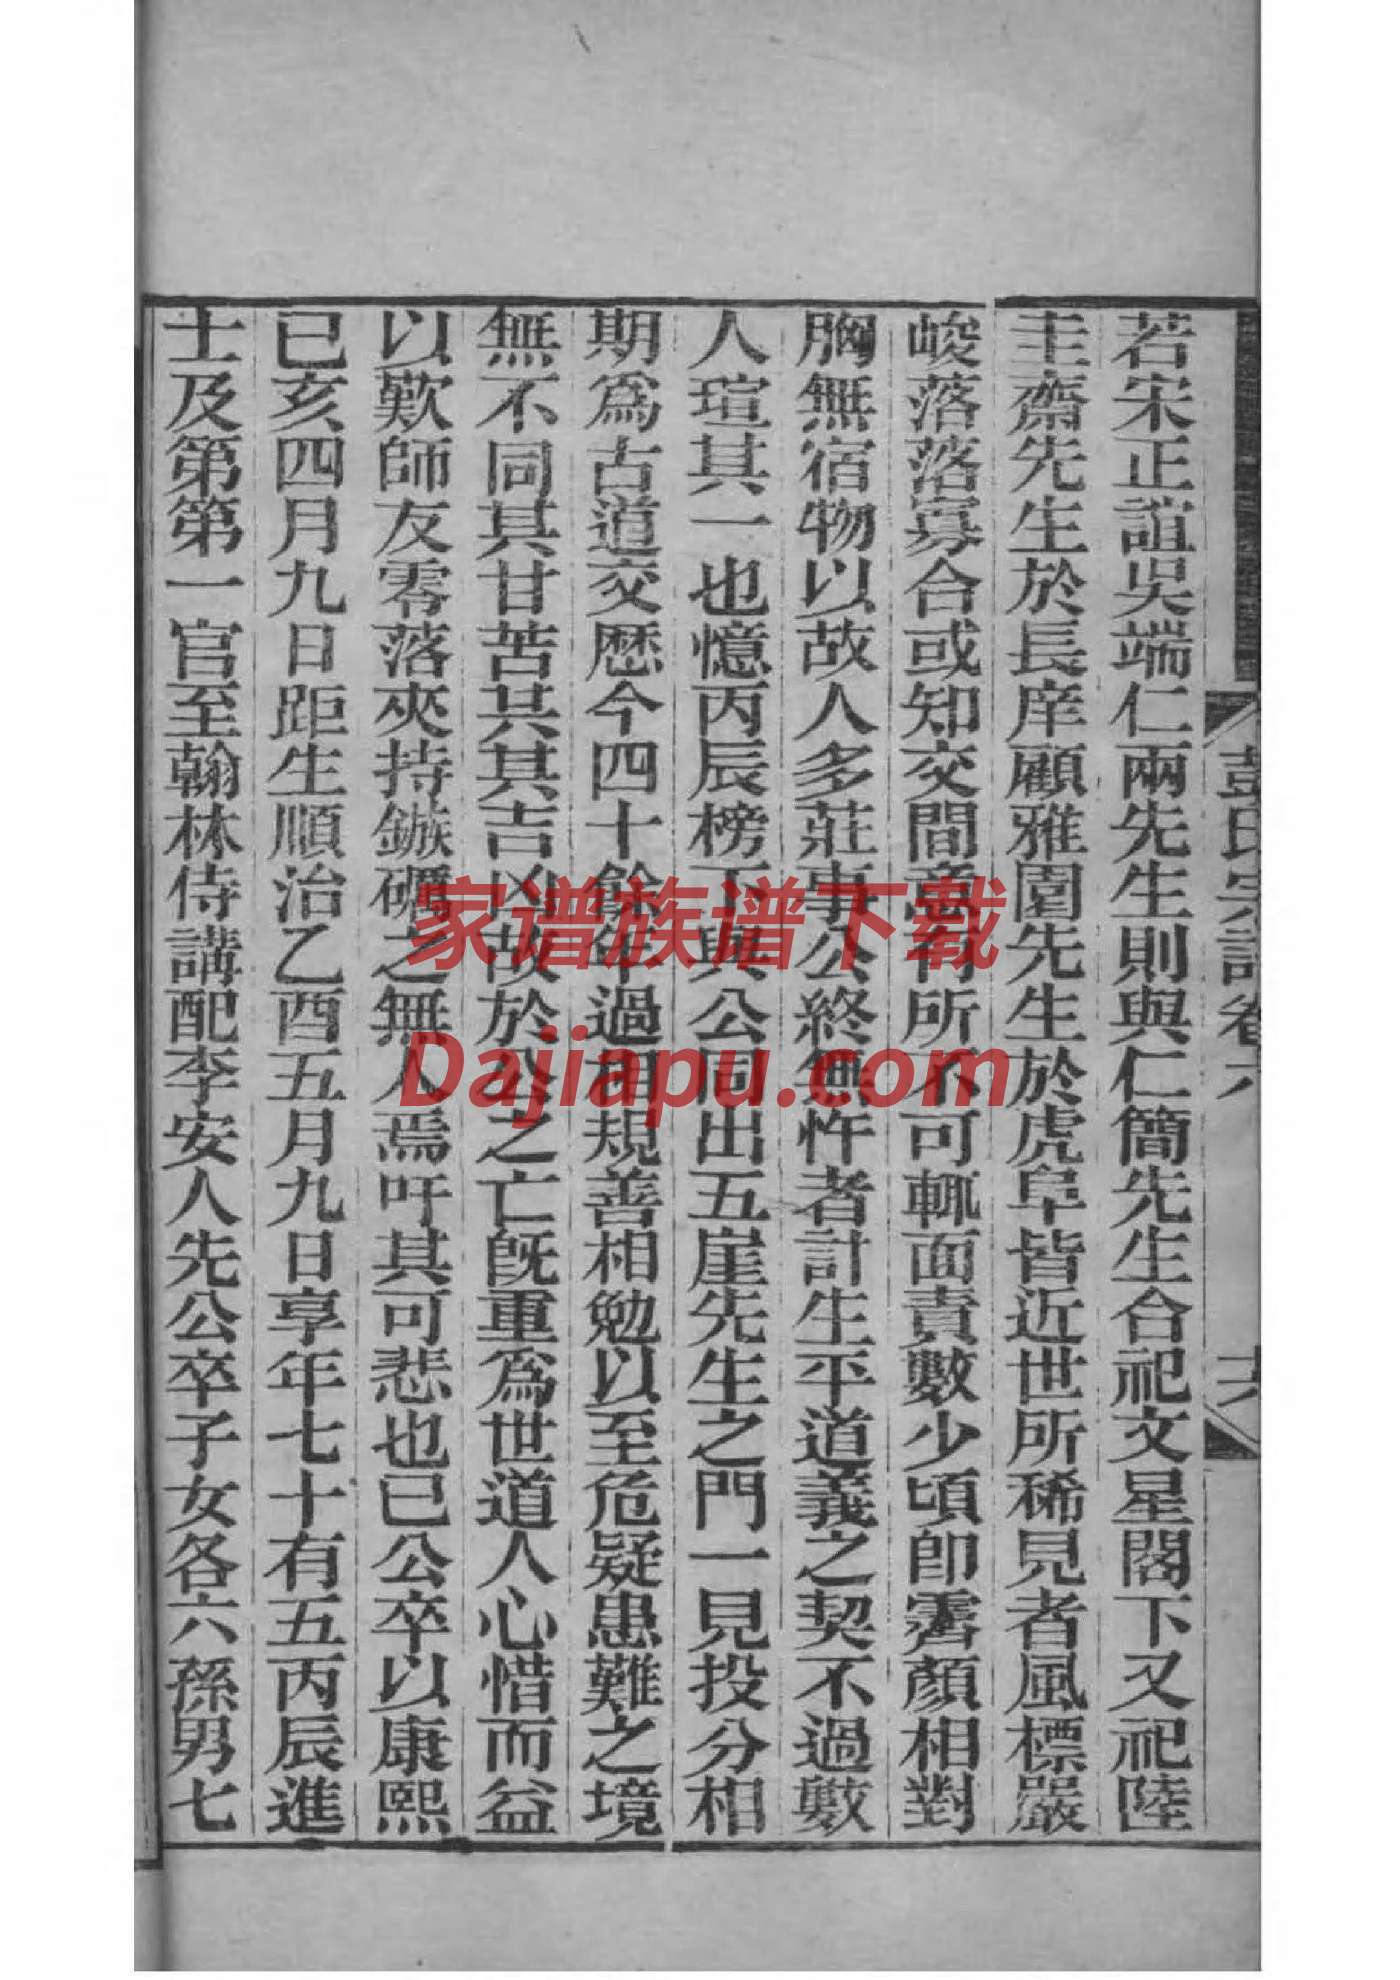 彭氏宗譜卷六
六
若宋正誼吳端仁兩先生則與仁簡先生合祀文星閣下又祀陸
圭齋先生於長庠顧雅園先生於虎阜皆近世所稀見者風標嚴
峻落落寡合或知交間意有所不可輒面責數少頃卽霽顏相對
胸無宿物以故人多莊事公終無忤者計生平道義之契不過數
人瑄其一也憶丙辰榜下與公同出五崖先生之門一見投分相
期爲古道交歷今四十餘年過相規善相勉以至危疑患難之境
無不同其甘苦共其吉凶故於公之亡旣重爲世道人心惜而益
以歎師友零落夾持鏃礪之無人焉吁其可悲也已公卒以康熙
已亥四月九日距生順治乙酉五月九日享年七十有五丙辰進
士及第第一官至翰林侍講配李安人先公卒子女各六孫男七
家谱族谱下载
Dajiapu.com